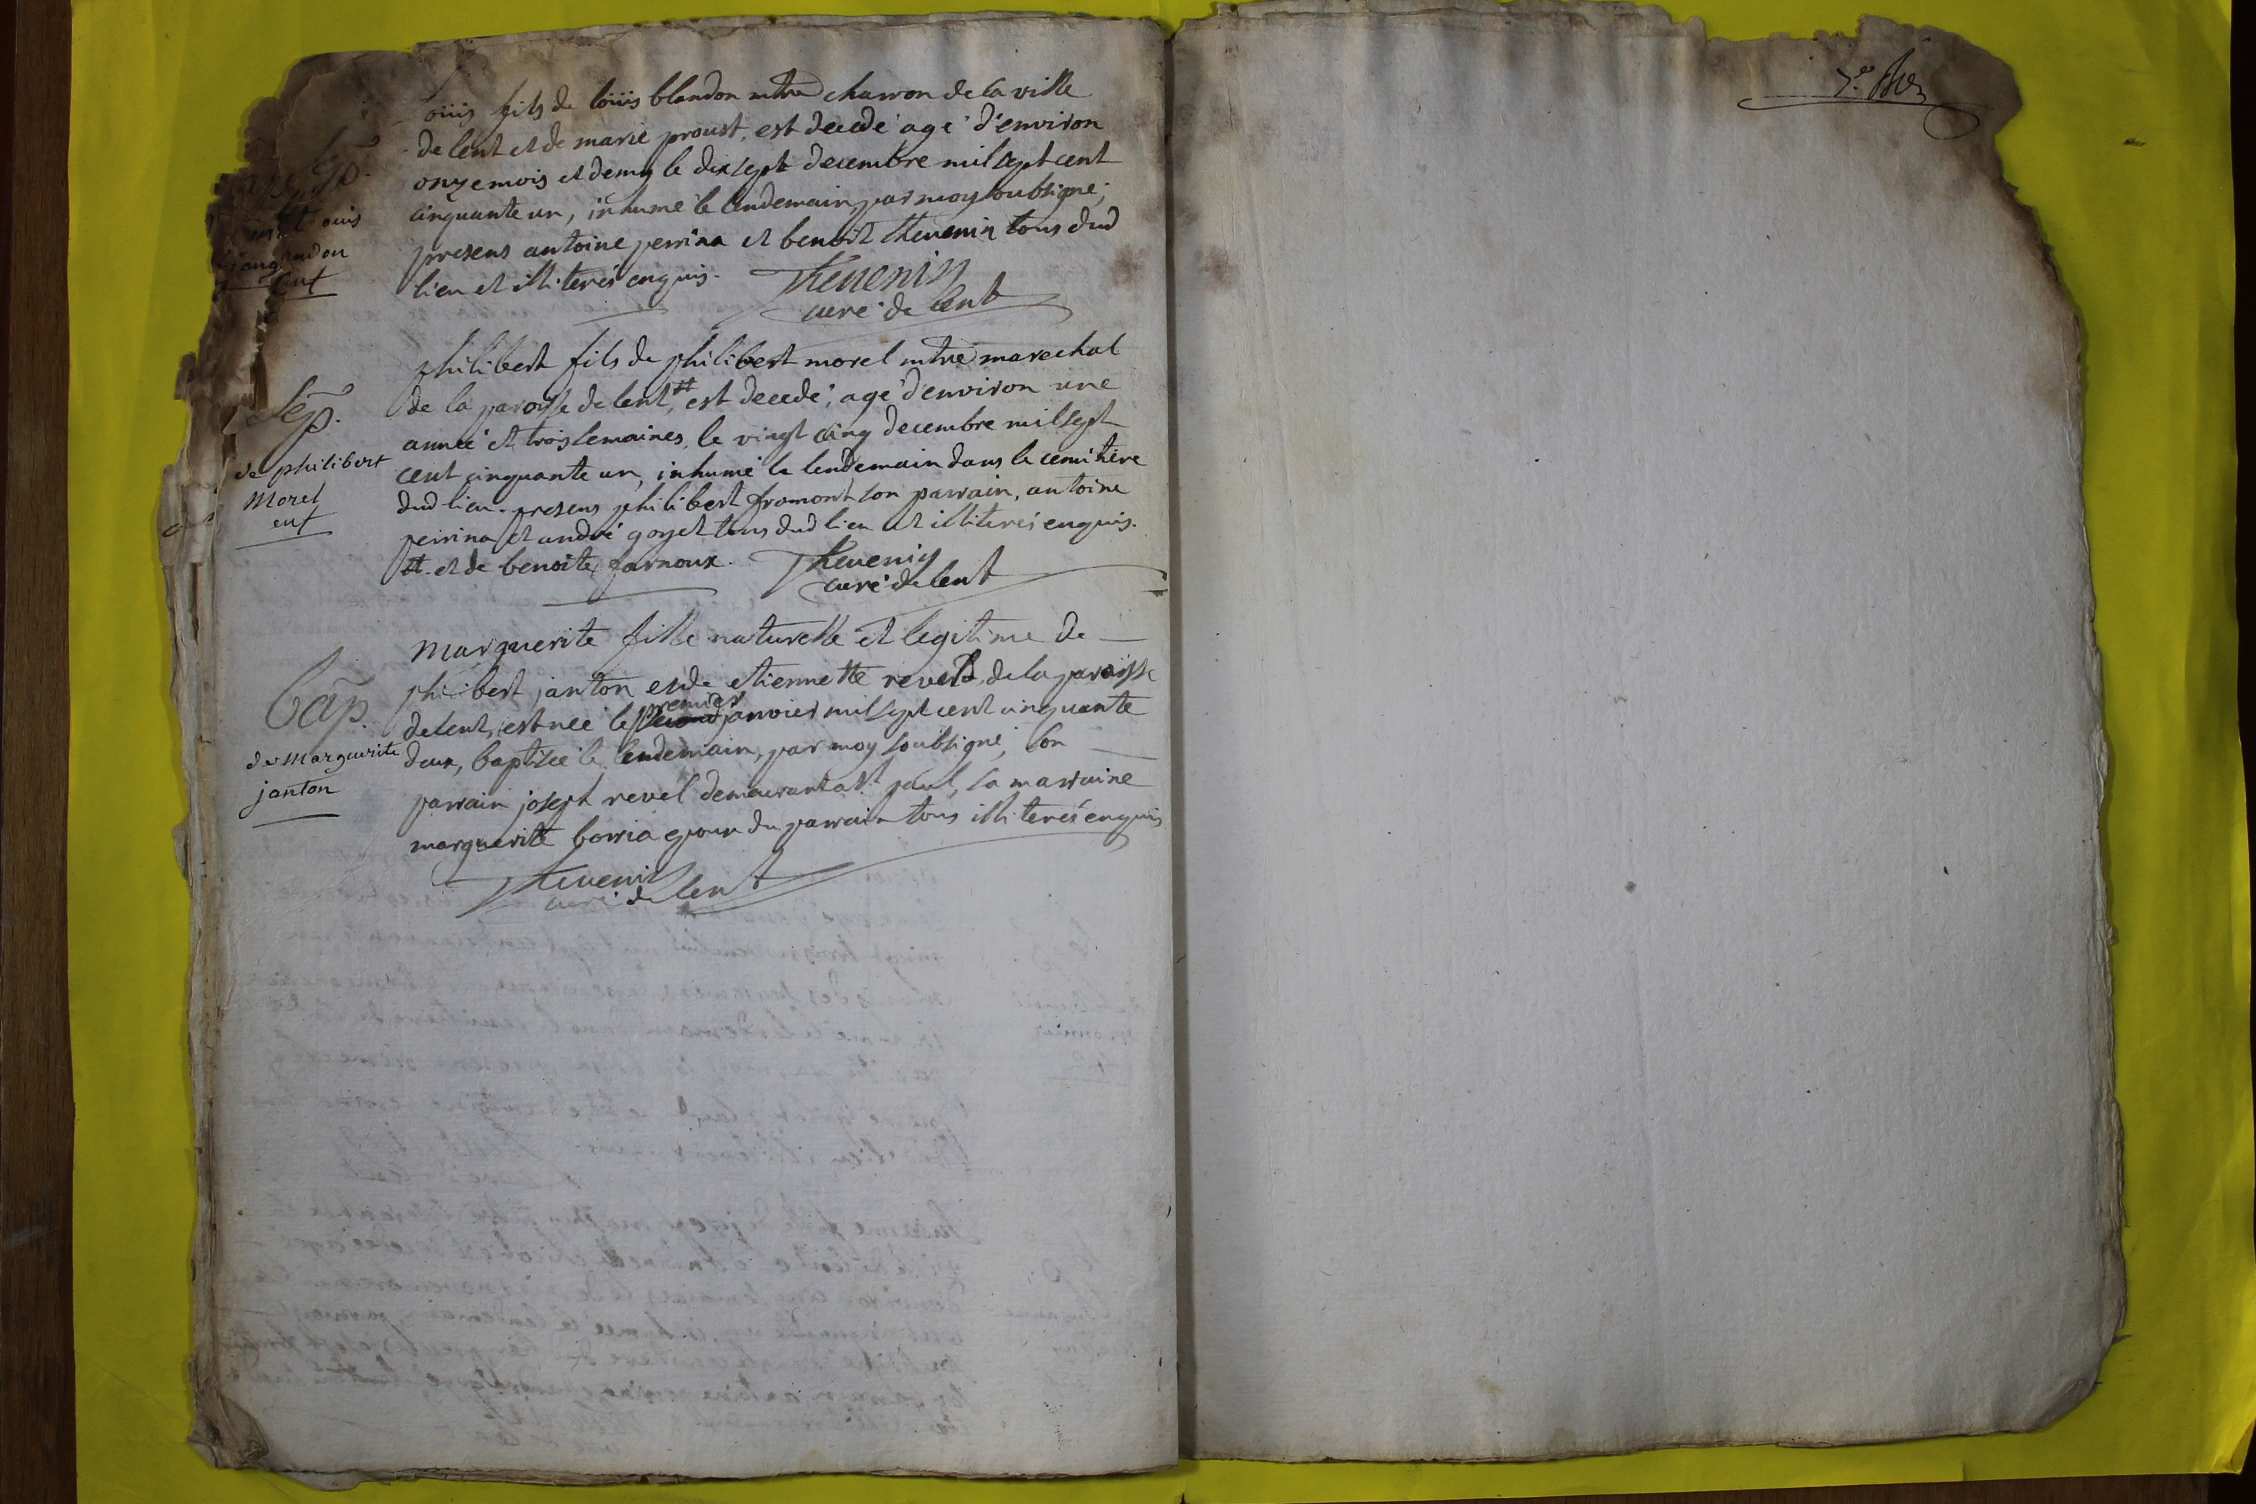 ouis fils de loüis blandon mtre charron de la ville
de lent et de marie proust, est decedé agé d'environ
onze mois et demy le dixsept decembre mil sept cent
cinquante un, inhumé le lendemain, par moy soubsigné;
presens antoine perrina et benoit thevenin tous dud
lieu et illiterés enquis.
Thevenin
curé de lent
Sep.
de philibert
Morel
enf
philibert fils de philibert morel mtre marechal
de la paroisse de lent, # est decedé, agé d'environ une
année et trois semaines, le vingt cinq decembre mil sept
cent cinquante un, inhumé le lendemain dans le cemitière
dud lieu. presens philibert fromont son parrain, antoine
perrina et andré goyet tous dud lieu et illiterés enquis.
# et de benoite farnoux.
Thevenin
curé de lent
bap.
de Marguerite
janton
marguerite fille naturelle et legitime de
philibert janton et de etiennette revel, de la paroisse
de lent, est née le premier janvier mil sept cent cinquante
deux, baptisée le lendemain, par moy soubsigné; son
parrain joseph revel demeurant a st paul, sa marraine
marguerite borria epouse du parrain tous illiterés enquis
Thevenin
curé de lent